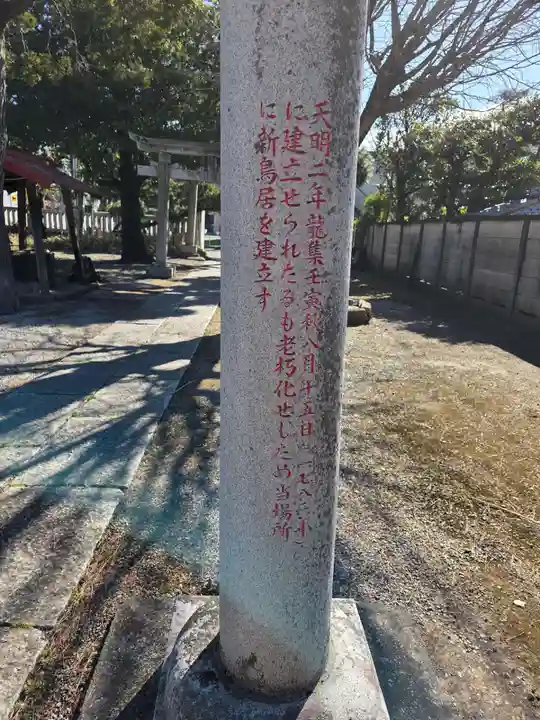 天明二年龍集壬寅秋八月十五日(一七八二年)
に建立せられたるも老朽化せしため当場所
に新鳥居を建立す